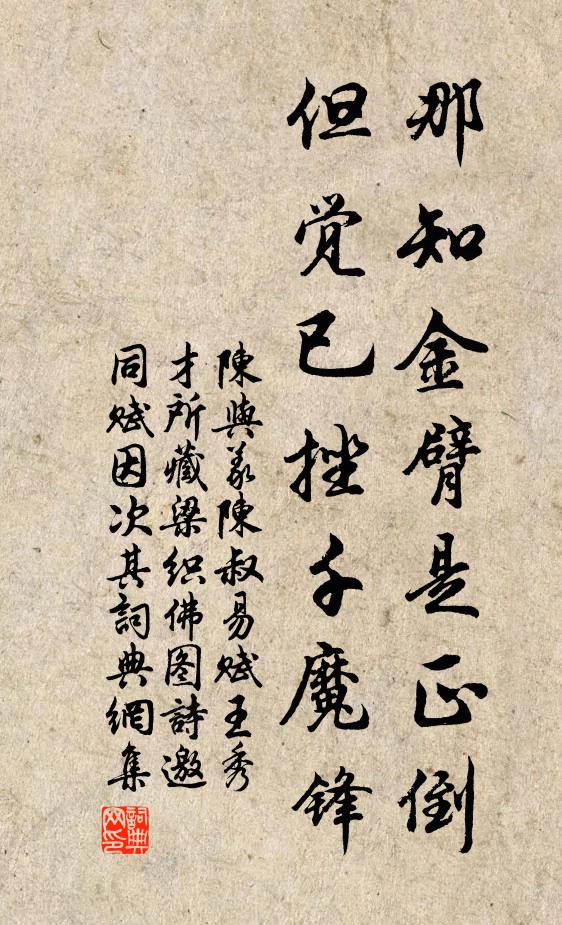 那知金臂是正倒
但觉已挫千魔锋
陳與義陳叔易賦王秀
才所藏梁织佛图詩邀
同赋因次其詞典網集
詞典
网印